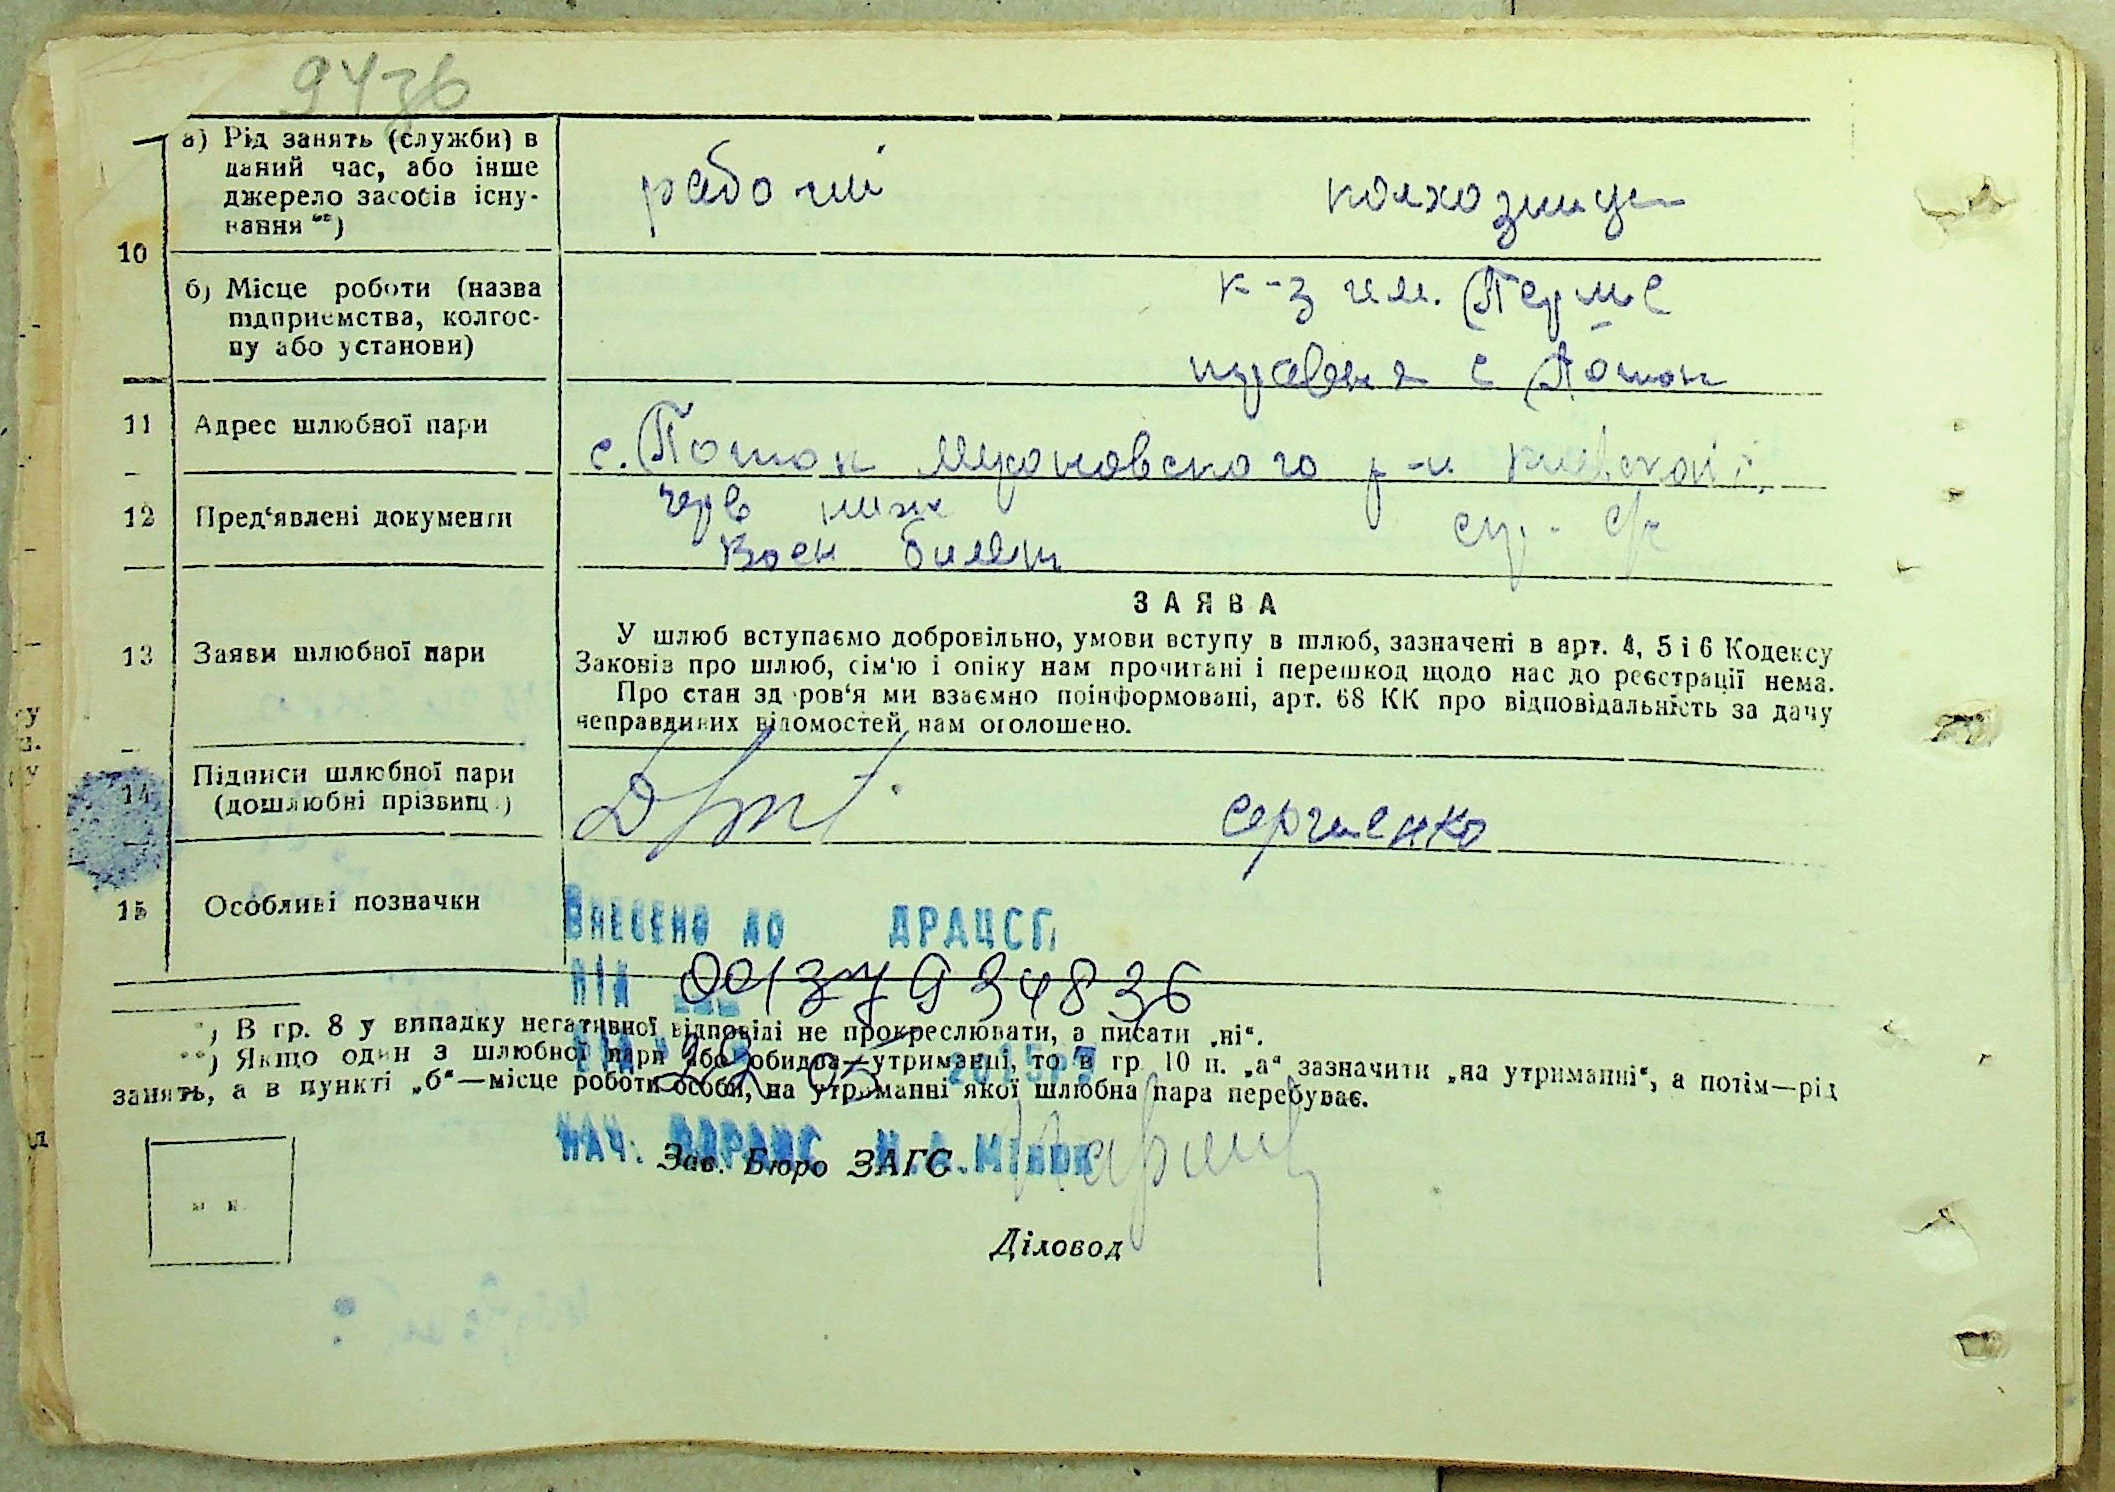 9436
а) Рід занять (служби) в
даний час, або інше
джерело засобів існу-
вання **)
рабочий
колхозница
10
б) Місце роботи (назва
підприємства, колгос-
пу або установи)
к-з им.
с Поток
11 Адрес шлюбної пари
с. Поток Мироновского р-н Киевской
12 Пред'явлені документи
воен билет
ЗАЯВА
13 Заяви шлюбної пари
У шлюб вступаємо добровільно, умови вступу в шлюб, зазначені в арт. 4, 5 і 6 Кодексу
Законів про шлюб, сім'ю і опіку нам прочитані і перешкод щодо нас до реєстрації нема.
Про стан здоров'я ми взаємно поінформовані, арт. 68 КК про відповідальність за дачу
неправдивих відомостей нам оголошено.
14 Підписи шлюбної пари
(дошлюбні прізвища)
Сергиенко
15 Особливі позначки
ВНЕСЕНО ДО ДРАЦСГ
ПІД 00137934836
*) В гр. 8 у випадку негативної відповіді не прокреслювати, а писати „ні“.
**) Якщо один з шлюбної пари або обидва утриманці, то в гр 10 п. „а“ зазначити „на утриманні“, а потім—рід
занять, а в пункті „б“—місце роботи особи, на утриманні якої шлюбна пара перебуває.
НАЧ.
Зав. Бюро ЗАГС
Діловод